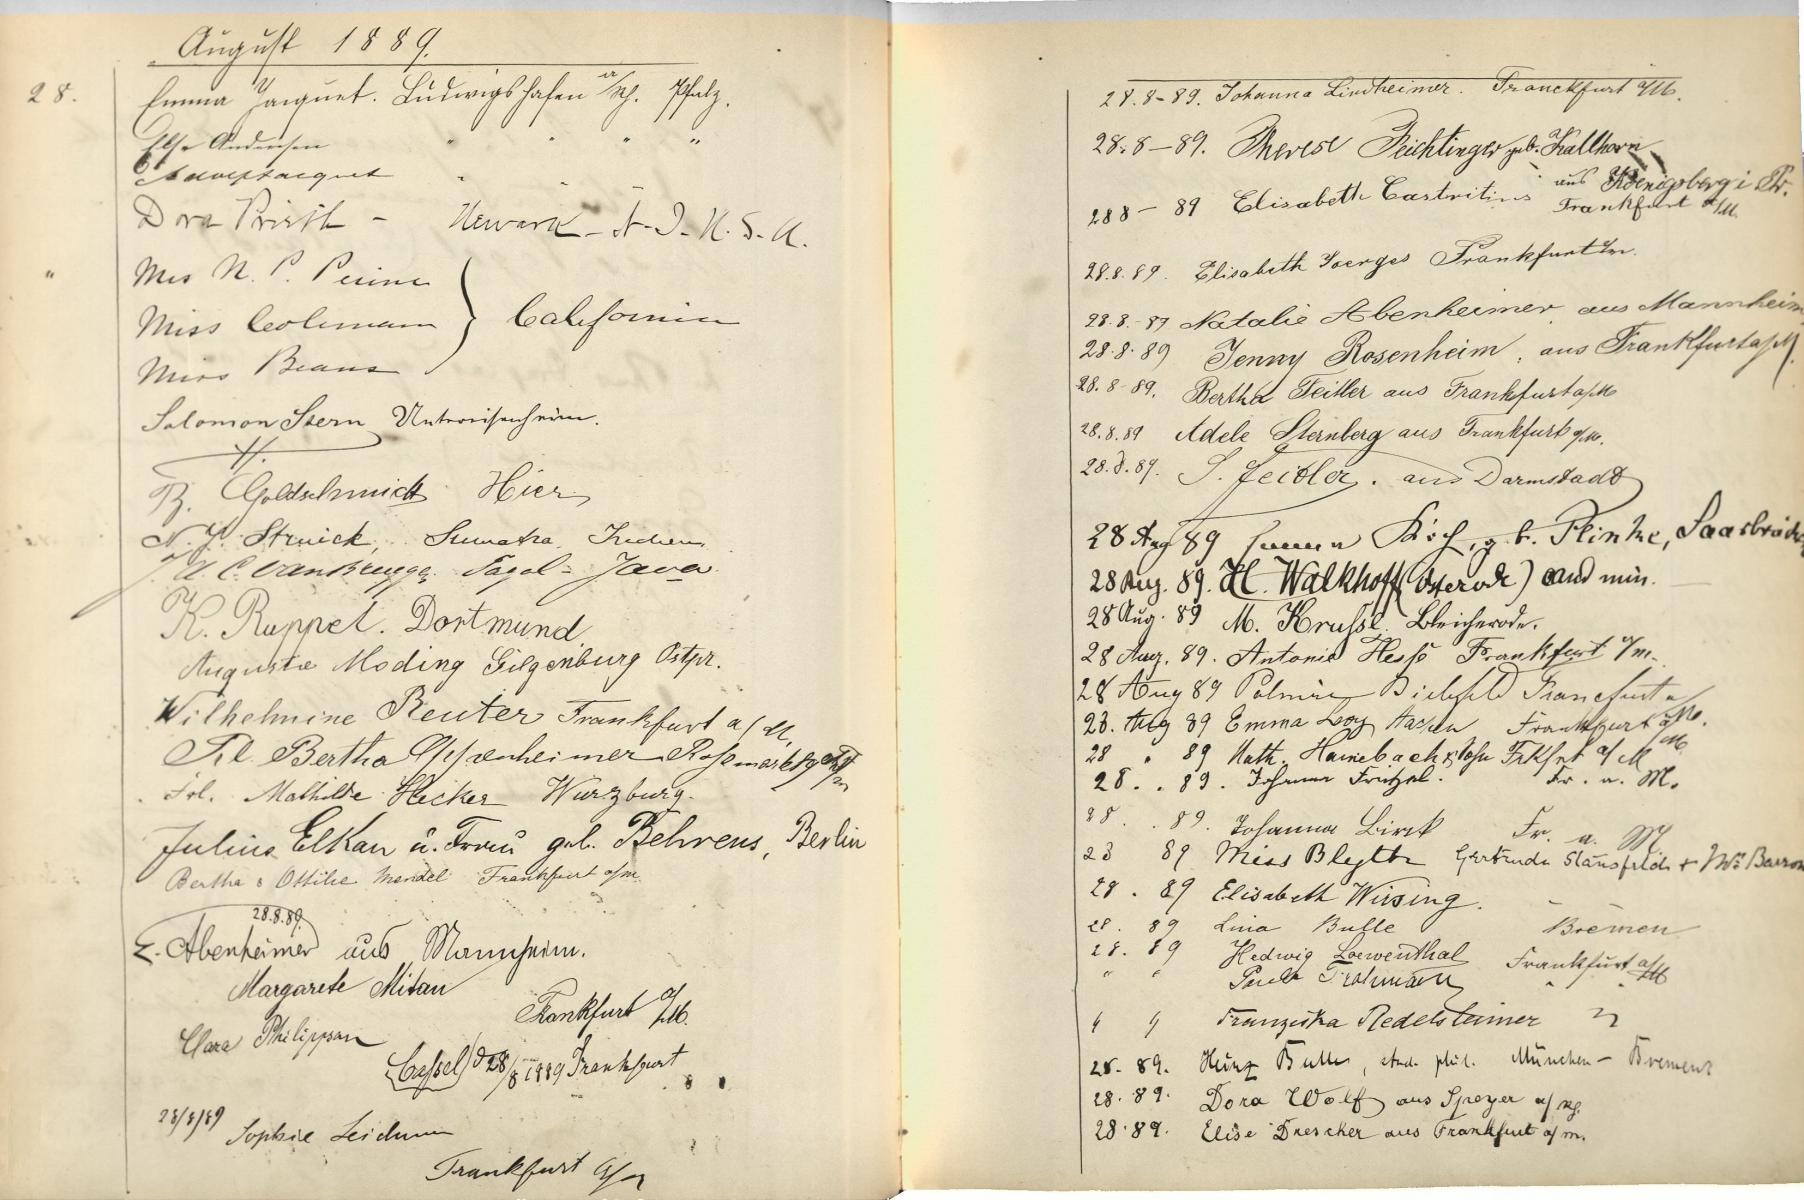 August 1889.
28. Emma Jacquet. Ludwigshafen a/Rh. Pfalz.
Else Andersen " " " "
Dora Kristh - Newark - N. J. U. S. A.
" Mrs N. P. Perine
Miss Coleman } California
Miss Beans
Salomon Stern Unterreisenheim.
B. Goldschmidt Hier
N. J. Struick, Sumatra
A. C. van Brugge. Tagal - Java
K. Ruppel. Dortmund
Auguste Moding Gilgenburg Ostpr.
Wilhelmine Reuter Frankfurt a/M.
Frl. Bertha Oppenheimer
Frl. Mathilde Hecker Würzburg.
Julius Elkan u. Frau geb. Behrens, Berlin
Bertha & Ottilie Mandel Frankfurt a/m.
28.8.89.
E. Abenheimer aus Mannheim.
Margarete Mitau
Frankfurt a/M.
Clara Philippson
(Cassel) d 28/8 1889 Frankfurt
28/8/89
Sophie
Frankfurt a/M
28.8-89. Johanna Lindheimer. Franckfurt a/M.
28.8-89. Therese Feichtinger geb. Kallhorn
aus Koenigsberg i Pr.
28 8 - 89 Elisabeth Castritius Frankfurt a/M.
28.8.89. Elisabeth Joerges Frankfurt a/m.
28.8.-89 Natalie Abenheimer aus Mannheim
28.8.89 Jenny Rosenheim, aus Frankfurt a/M.
28.8-89. Bertha Feitler aus Frankfurt a/M
28.8.89 Adele Sternberg aus Frankfurt a/M.
28.8.89. S. Zeidler. aus Darmstadt
28 Aug 89 Emma Koch, geb. Flinke, Saarbrücken
28 Aug. 89. H. Walkhoff (Osterode) cand min.
28 Aug. 89 M. Kruse Bleicherode.
28 Aug. 89. Antonie Hesse Frankfurt a/m.
28 Aug 89 Palmire Bielefeld Francfurt a/M.
28. Aug 89 Emma Loy Aachen Frankfurt a/M
28 " 89 Nath. Hainebach Frkfrt a/M
28. . 89. Johanna Fritzel. Fr. a. M.
28. . 89. Johanna Birck Fr. a. M
28 89 Miss Blyth Gertrude Stansfield + Mrs Barron
28. 89 Elisabeth Wirsing.
28. 89 Lina Bulle Bremen
28. 89 Hedwig Loewenthal Frankfurt a/M
" " Paula Trohmann " "
" " Franziska Redelsheimer "
28. 89. Heinz Bulle, stud. phil. München - Bremen
28. 89. Dora Wolff aus Speyer a/Rh.
28. 89. Elise Drescher aus Frankfurt a/m.